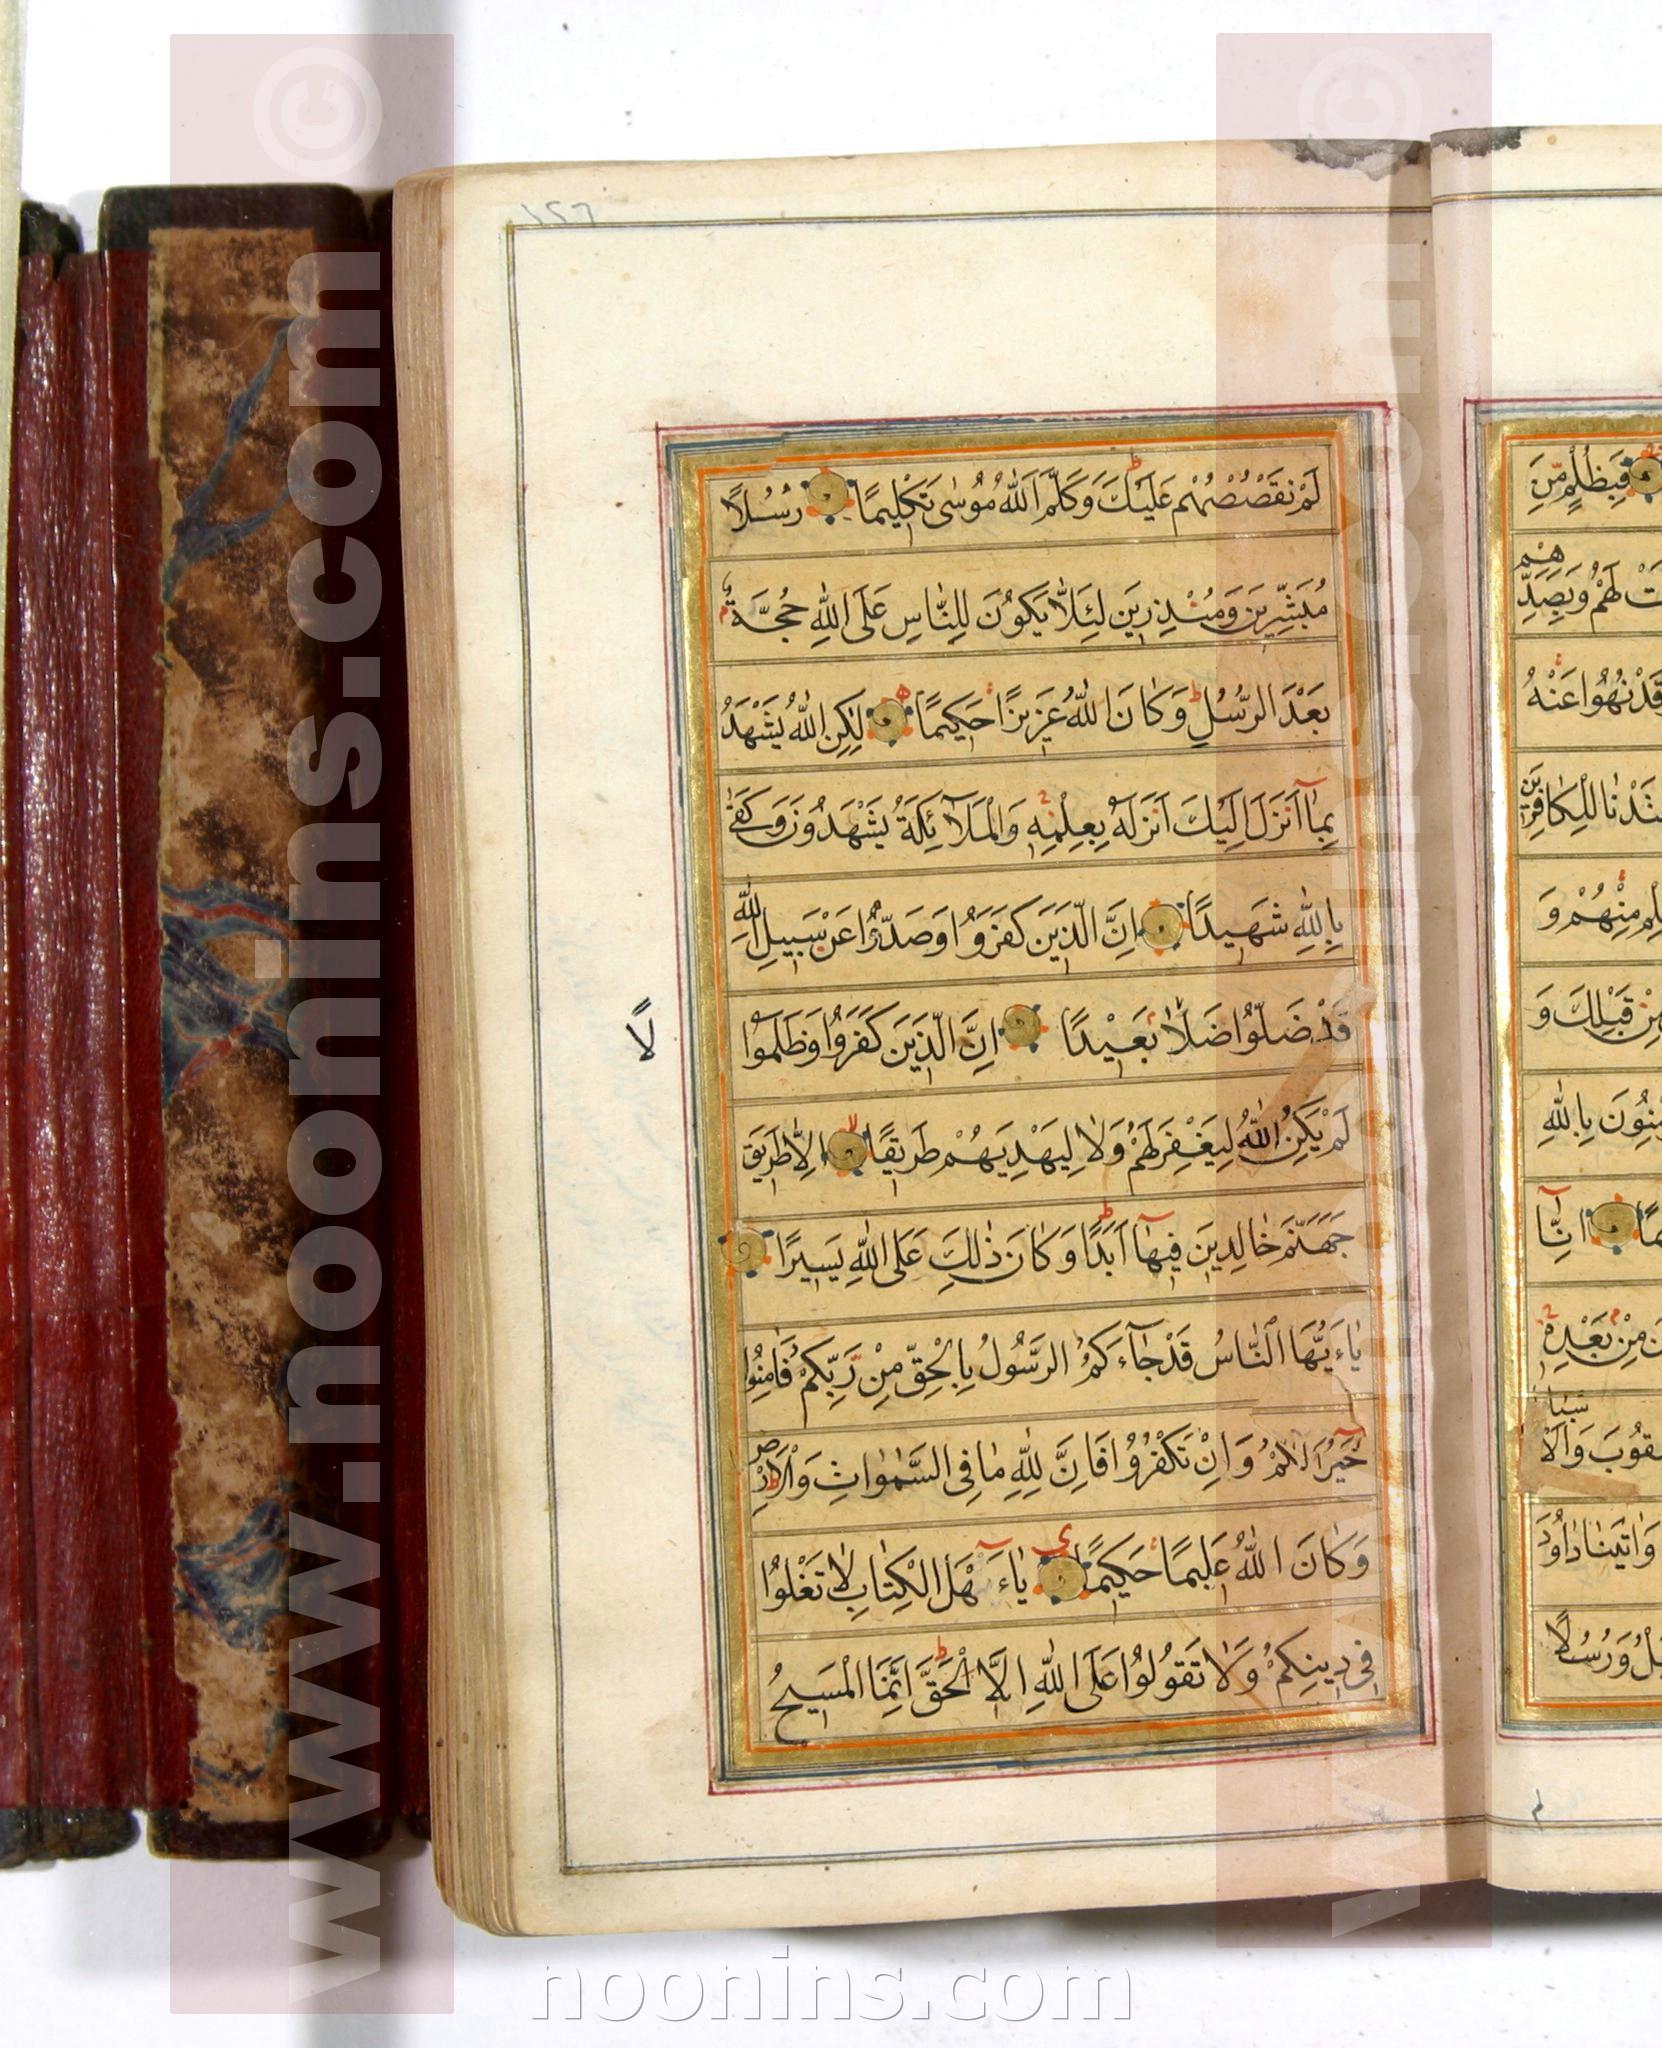 لَمْ نَقْصُصْهُمْ عَلَيْكَ وَكَلَّمَ اللّٰهُ مُوسٰى تَكْلِيمًا رُسُلًا
مُبَشِّرِينَ وَمُنْذِرِينَ لِئَلَّا يَكُونَ لِلنَّاسِ عَلَى اللّٰهِ حُجَّةٌ
بَعْدَ الرُّسُلِ وَكَانَ اللّٰهُ عَزِيزًا حَكِيمًا لٰكِنِ اللّٰهُ يَشْهَدُ
بِمَا اَنْزَلَ اِلَيْكَ اَنْزَلَهُ بِعِلْمِهِ وَالْمَلَآئِكَةُ يَشْهَدُونَ وَكَفٰى
بِاللّٰهِ شَهِيدًا اِنَّ الَّذِينَ كَفَرُوا وَصَدُّوا عَنْ سَبِيلِ اللّٰهِ
قَدْ ضَلُّوا ضَلَالًا بَعِيدًا اِنَّ الَّذِينَ كَفَرُوا وَظَلَمُوا
لًا
لَمْ يَكُنِ اللّٰهُ لِيَغْفِرَ لَهُمْ وَلَا لِيَهْدِيَهُمْ طَرِيقًا اِلَّا طَرِيقَ
جَهَنَّمَ خَالِدِينَ فِيهَا اَبَدًا وَكَانَ ذٰلِكَ عَلَى اللّٰهِ يَسِيرًا
يٰاءَيُّهَا النَّاسُ قَدْ جَآءَكُمُ الرَّسُولُ بِالْحَقِّ مِنْ رَبِّكُمْ فَاٰمِنُوا
خَيْرًا لَكُمْ وَاِنْ تَكْفُرُوا فَاِنَّ لِلّٰهِ مَا فِي السَّمٰوَاتِ وَالْاَرْضِ
وَكَانَ اللّٰهُ عَلِيمًا حَكِيمًا يٰاءَهْلَ الْكِتَابِ لَا تَغْلُوا
فِي دِينِكُمْ وَلَا تَقُولُوا عَلَى اللّٰهِ اِلَّا الْحَقَّ اِنَّمَا الْمَسِيحُ
فَبِظُلْمٍ مِّنَ
لَهُمْ وَبِصَدِّهِمْ
وَقَدْ نُهُوا عَنْهُ
لِلْكَافِرِينَ
مِنْهُمْ وَ
مِنْ قَبْلِكَ وَ
بِاللّٰهِ
اِنَّا
مِنْ بَعْدِهِ
وَاٰتَيْنَا دَاوُدَ
وَرُسُلًا
www.noonins.com ©
www.noonins.com ©
noonins.com